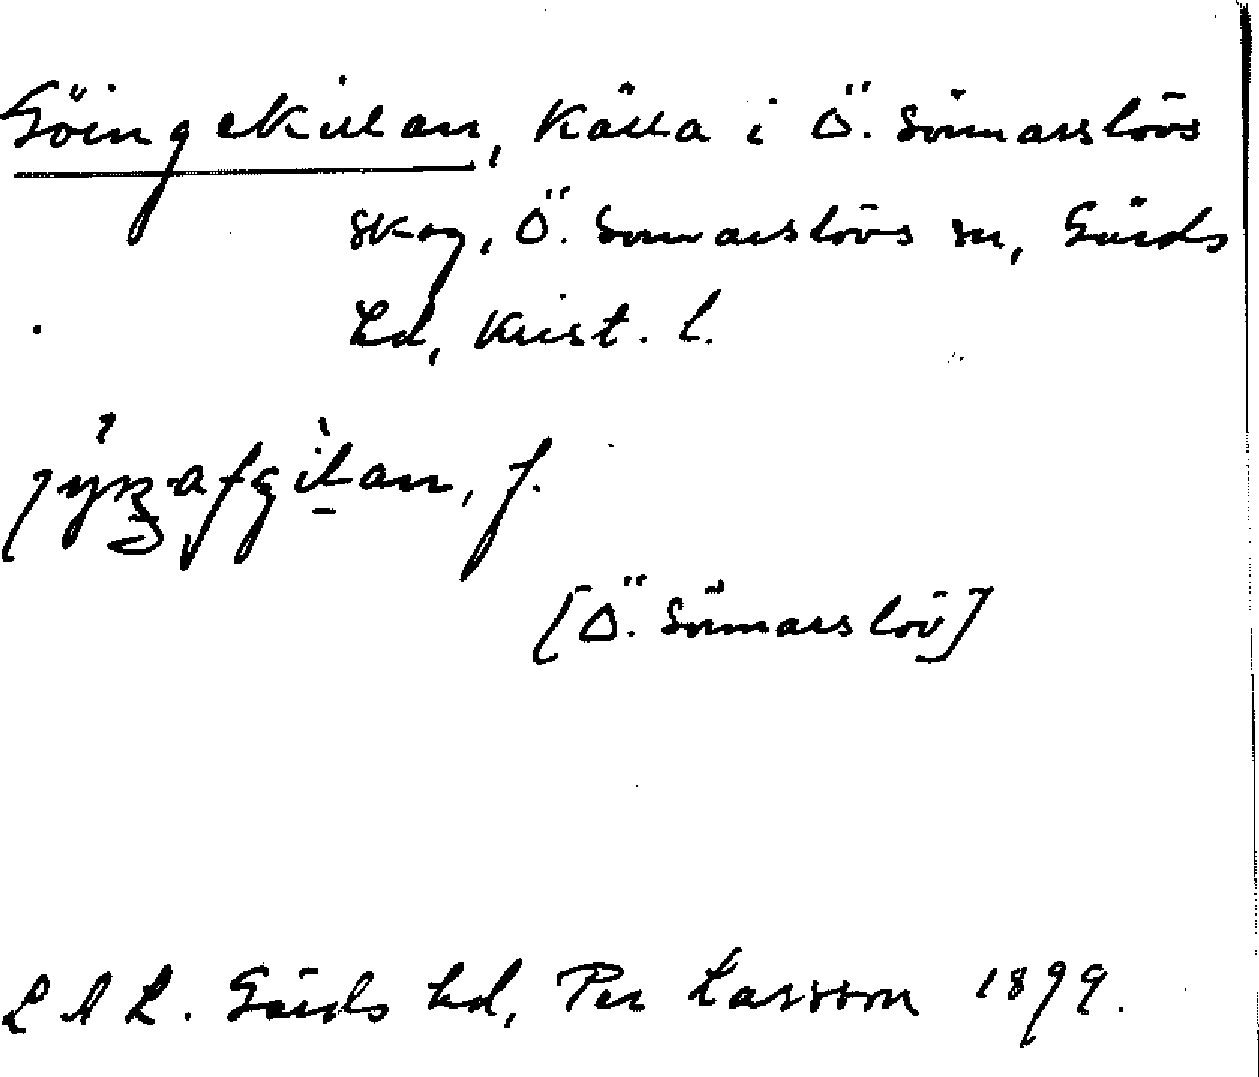 Göingekillan, Källa i Ö. Sönnarslövs
skog, Ö. Sönnarslövs sn, Gärds
hd, Krist. l.
f.
[Ö. Sönnarslöv]
L A L. Gärds hd, Per Larsson 1899.